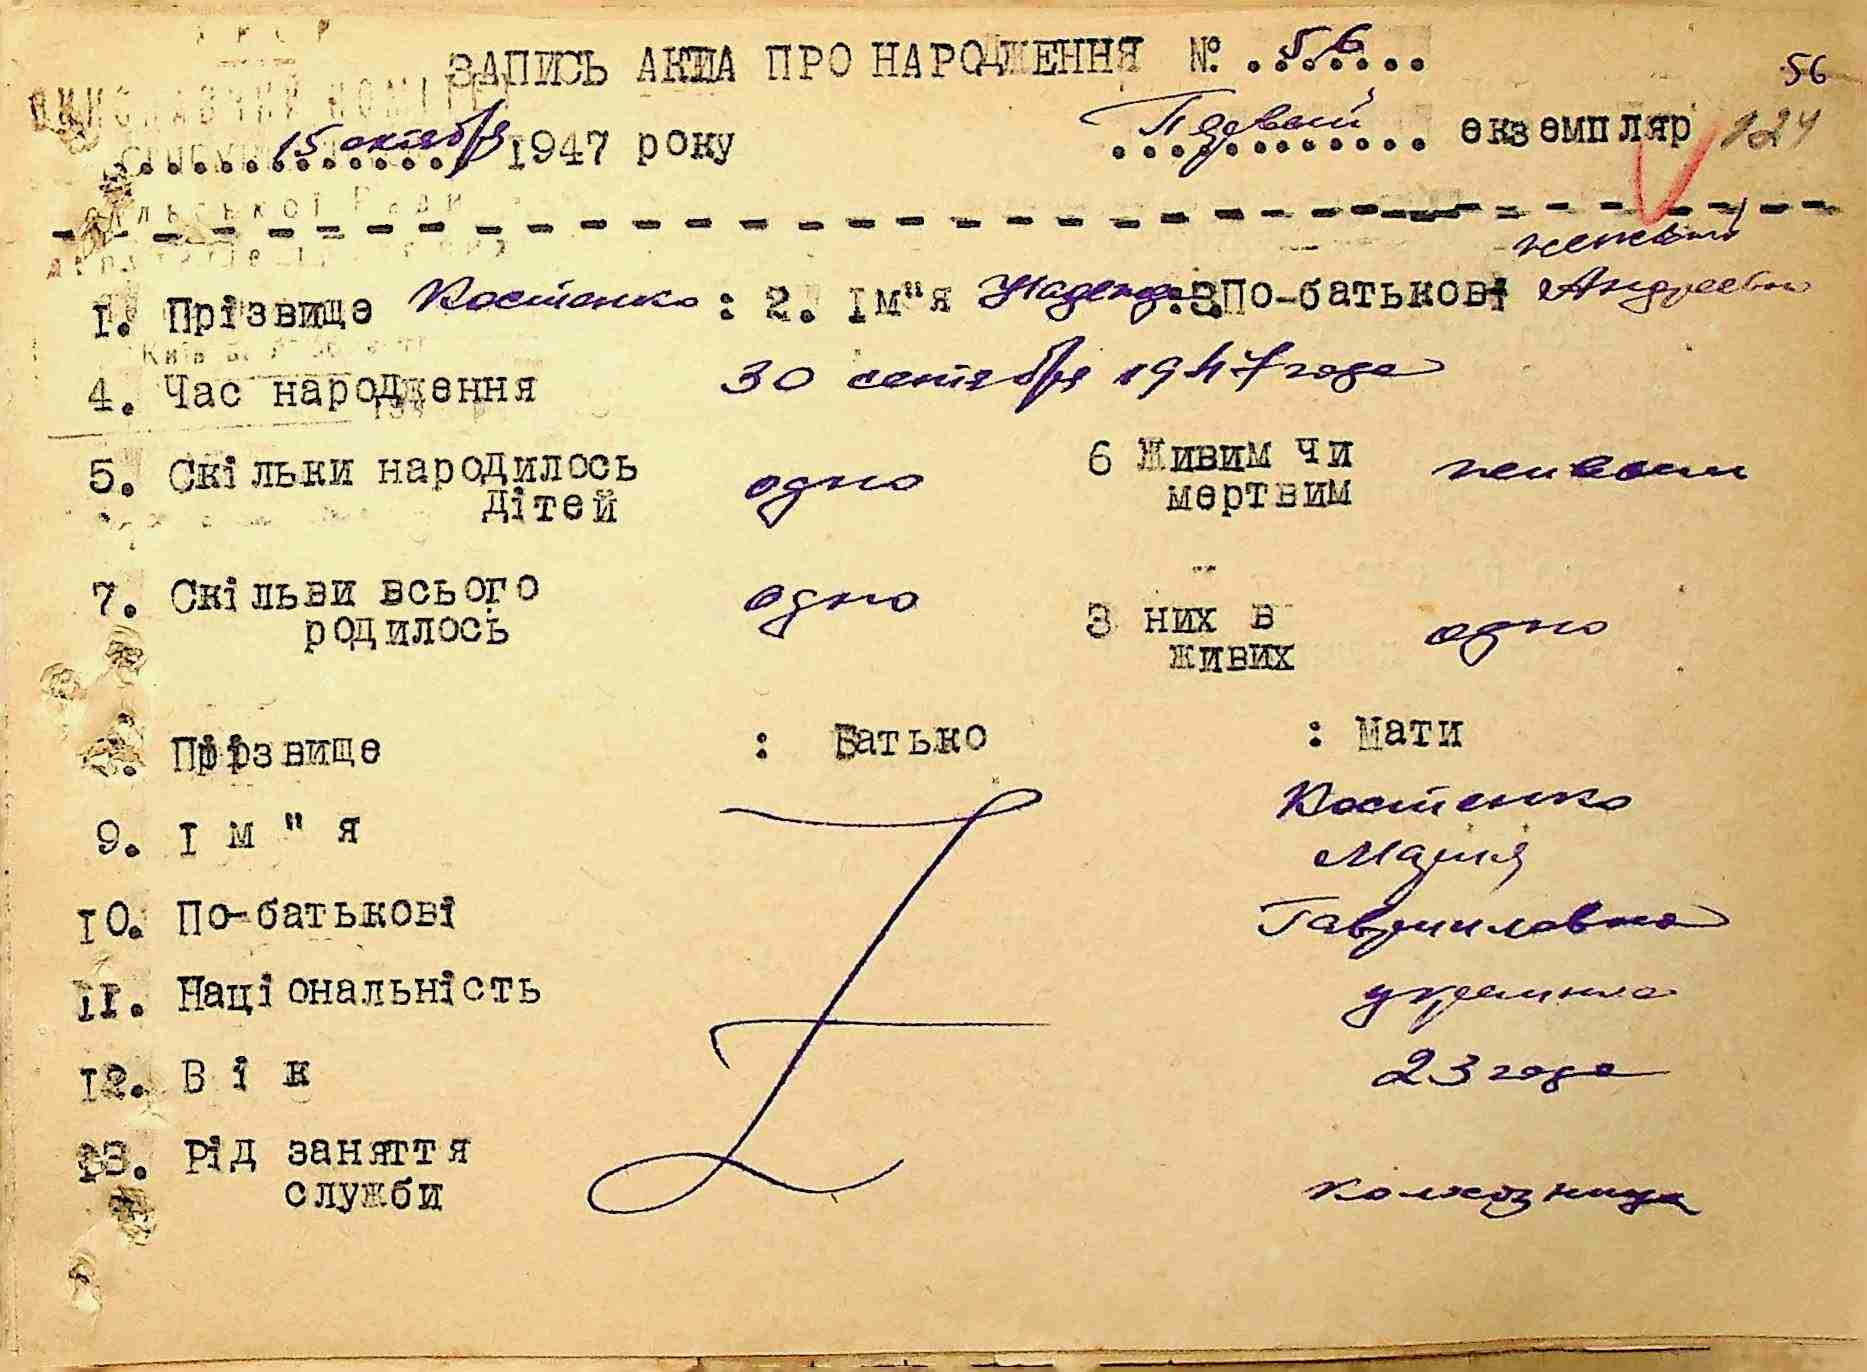 У Р С Р
ЗАПИСЬ АКТА ПРО НАРОДЖЕННЯ № 56
56
ВИКОНАВЧИЙ КОМІТЕТ
15 октября 1947 року Первый екземпляр 124
сільської Ради
1. Прізвище Костенко : 2. Ім"я Надежда :3.По-батькові Андреевна
4. Час народження 30 сентября 1947 года
5. Скільки народилось дітей одно 6 Живим чи мертвим живым
7. Скільви всього родилось одно З них в живих одно
8. Прізвище : Батько : Мати
Костенко
9. І м " я Мария
10. По-батькові Гавриловна
11. Національність украинка
12. В і к 23 года
13. Рід заняття служби колхозница